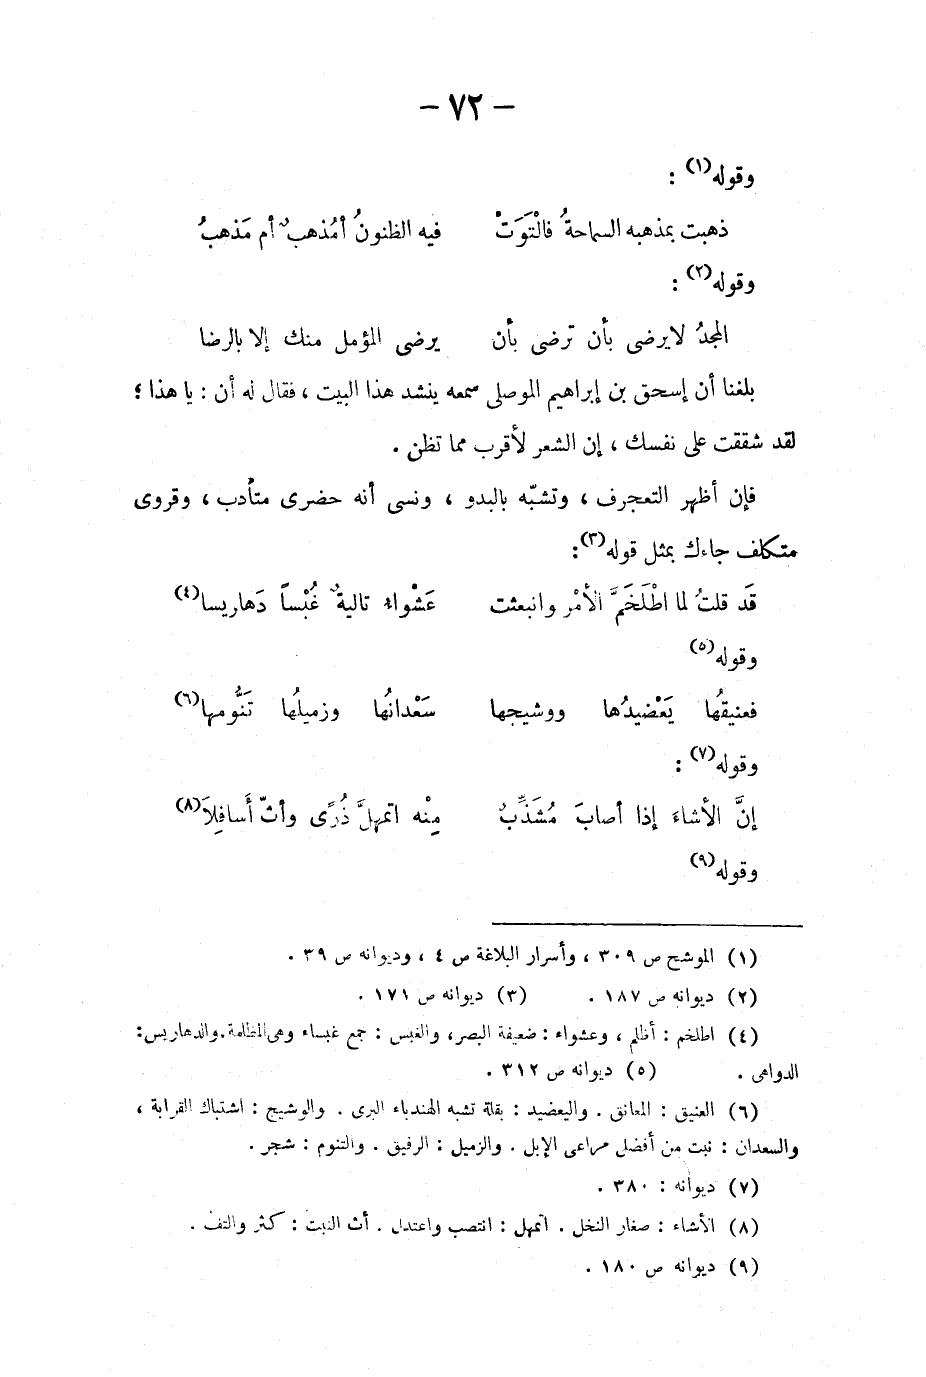 — ٧٢ —
وقوله(١) :
ذهبت بمذهبه السماحةُ فالْتَوَتْ فيه الظنونُ أمُذهبٌ أم مَذهبُ
وقوله(٢) :
المجدُ لايرضى بأن ترضى بأن يرضى المؤمل منك إلا بالرضا
بلغنا أن إسحق بن إبراهيم الموصلى سمعه ينشد هذا البيت ، فقال له أن : يا هذا ؛
لقد شققت على نفسك ، إن الشعر لأقرب مما تظن .
فإن أظهر التعجرف ، وتشبّه بالبدو ، ونسى أنه حضرى متأدب ، وقروى
متكلف جاءك بمثل قوله(٣) :
قَد قلتُ لما اطْلَخَمَّ الأمْر وانبعثت عَشْواء تاليةٌ غُبْساً دَهاريسا(٤)
وقوله(٥)
فعنيقُها يَعْضيدُها ووشيجها سَعْدانُها وزميلُها تَنُّومها(٦)
وقوله(٧) :
إنَّ الأشاءَ إذا أصابَ مُشَذِّبٌ مِنْه اتمهلَّ ذُرًى وأثّ أَسافِلاَ(٨)
وقوله(٩)
(١) الموشح ص ٣٠٩ ، وأسرار البلاغة ص ٤ ، وديوانه ص ٣٩ .
(٢) ديوانه ص ١٨٧ . (٣) ديوانه ص ١٧١ .
(٤) اطلخم : أظلم ، وعشواء : ضعيفة البصر، والغبس : جمع غبساء وهى المظلمة. والدهاريس :
الدواهى . (٥) ديوانه ص ٣١٢ .
(٦) العنيق : المعانق . واليعضيد : بقلة تشبه الهندباء البرى . والوشيج : اشتباك القرابة ،
والسعدان : نبت من أفضل مراعى الإبل . والزميل : الرفيق . والتنوم : شجر .
(٧) ديوانه : ٣٨٠ .
(٨) الأشاء : صغار النخل . اتمهل : انتصب واعتدل . أث النبت : كثر والتف .
(٩) ديوانه ص ١٨٠ .